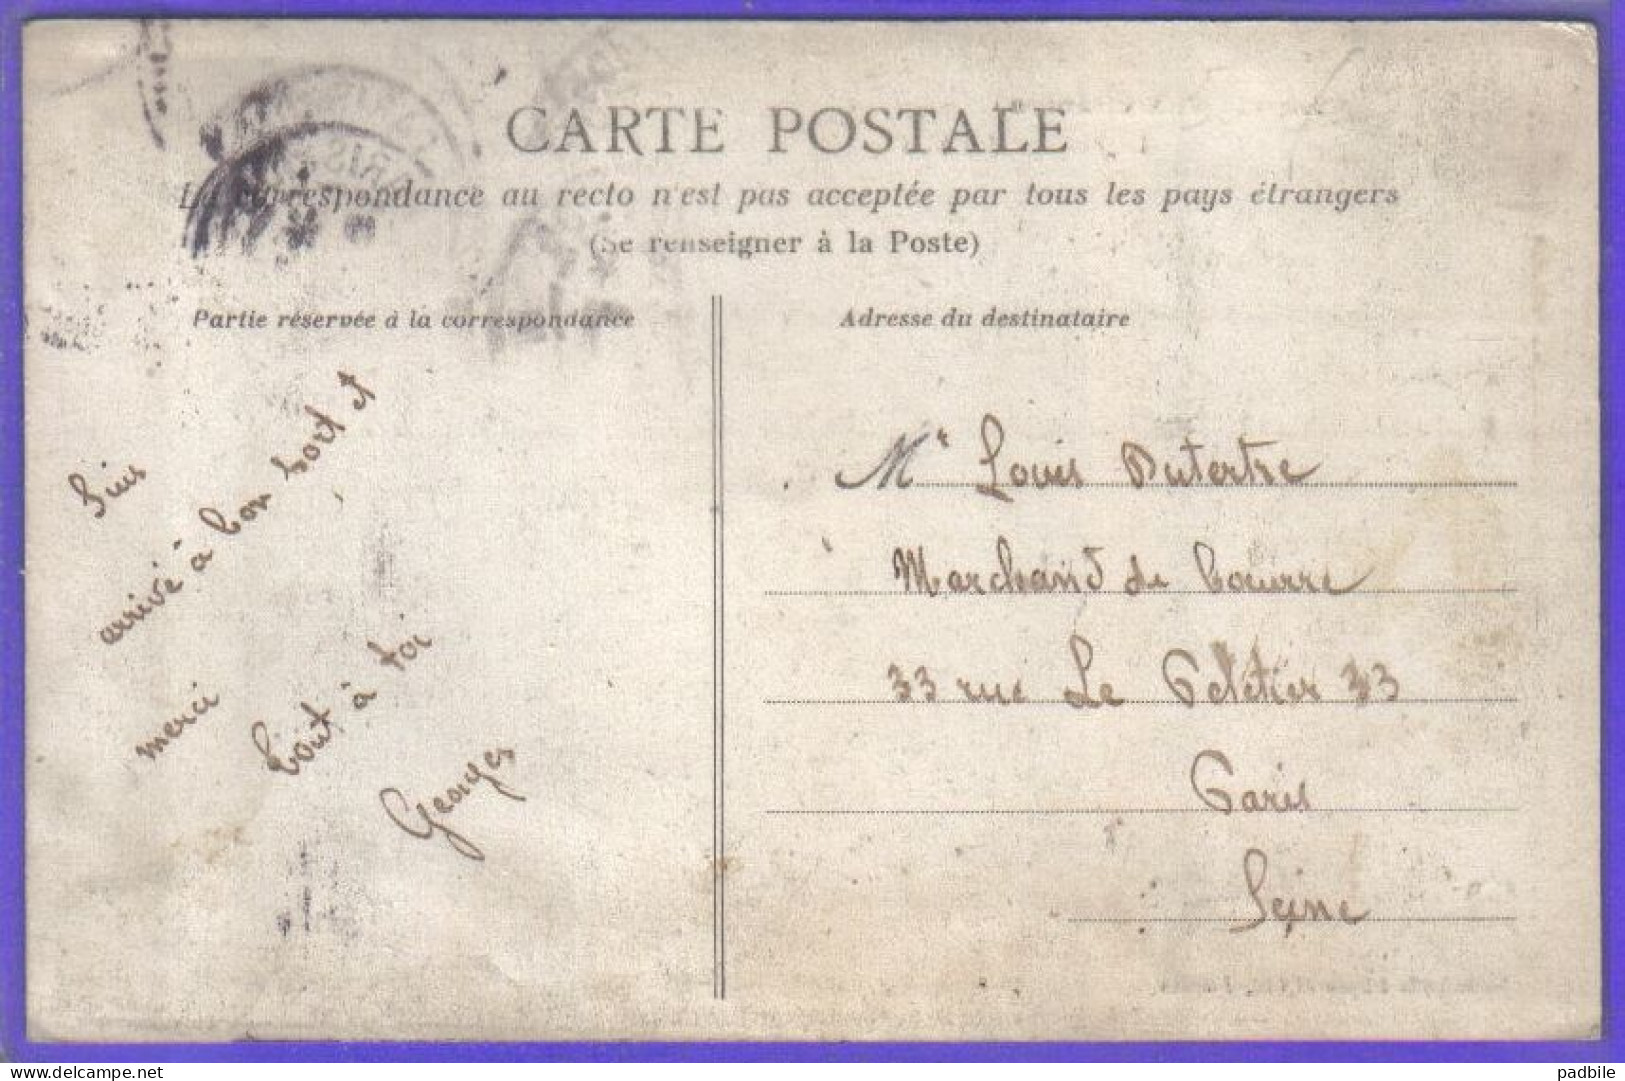 CARTE POSTALE
La correspondance au recto n'est pas acceptée par tous les pays étrangers
(Se renseigner à la Poste)
Partie réservée à la correspondance
Adresse du destinataire
Suis
arrivé à bon port et
merci
tout à toi
Georges
Mr Louis Dutertre
Marchand de beurre
33 rue Le Peletier 33
Paris
Seine
delcampe.net
padbile